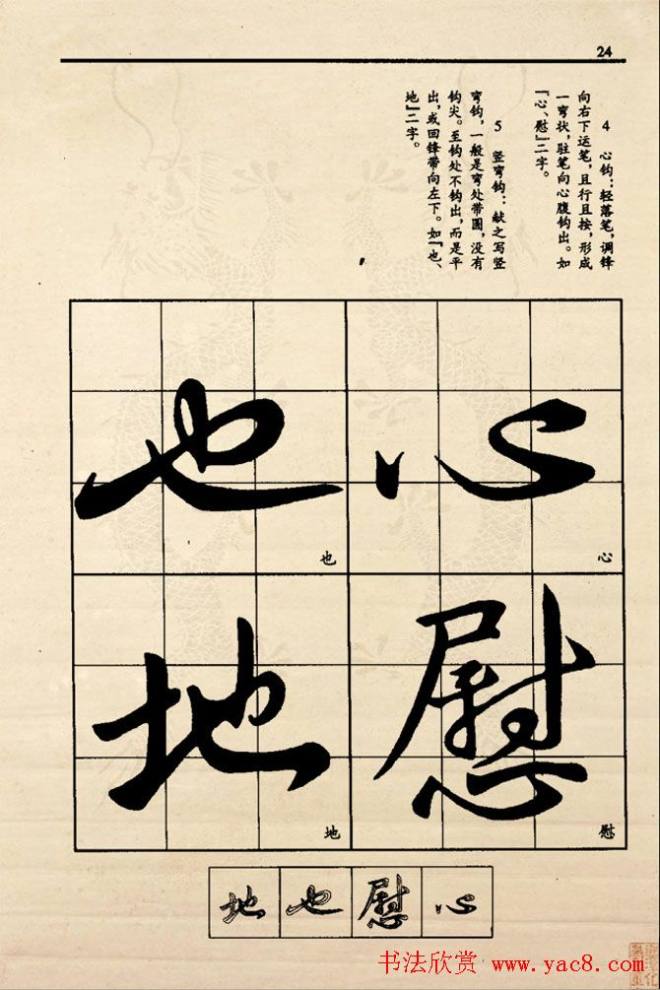 24
4　心钩：轻落笔，调锋
向右下运笔，且行且按，形成
一弯状，驻笔向心腹钩出。如
『心、慰』二字。
5　竖弯钩：献之写竖
弯钩，一般是弯处带圆，没有
钩尖。至钩处不钩出，而是平
出，或回锋带向左下。如『也、
地』二字。
心
心
慰
慰
也
也
地
地
心
慰
也
地
书法欣赏 www.yac8.com